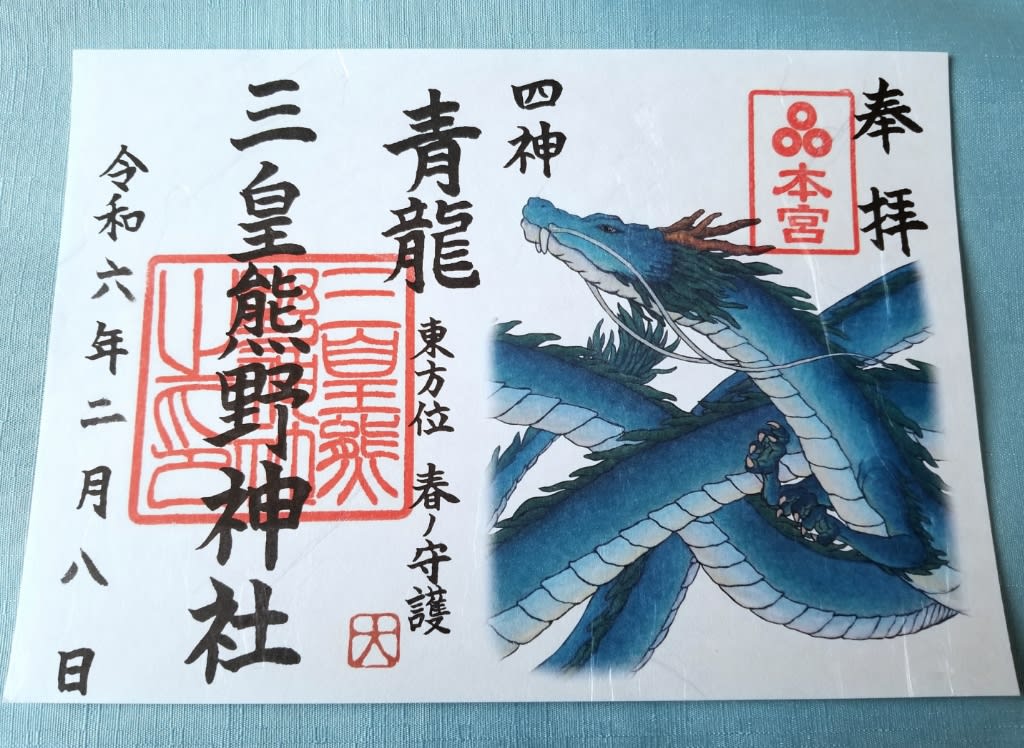 奉拝
本宮
四神
青龍
東方位 春ノ守護
三皇熊野神社
令和六年二月八日